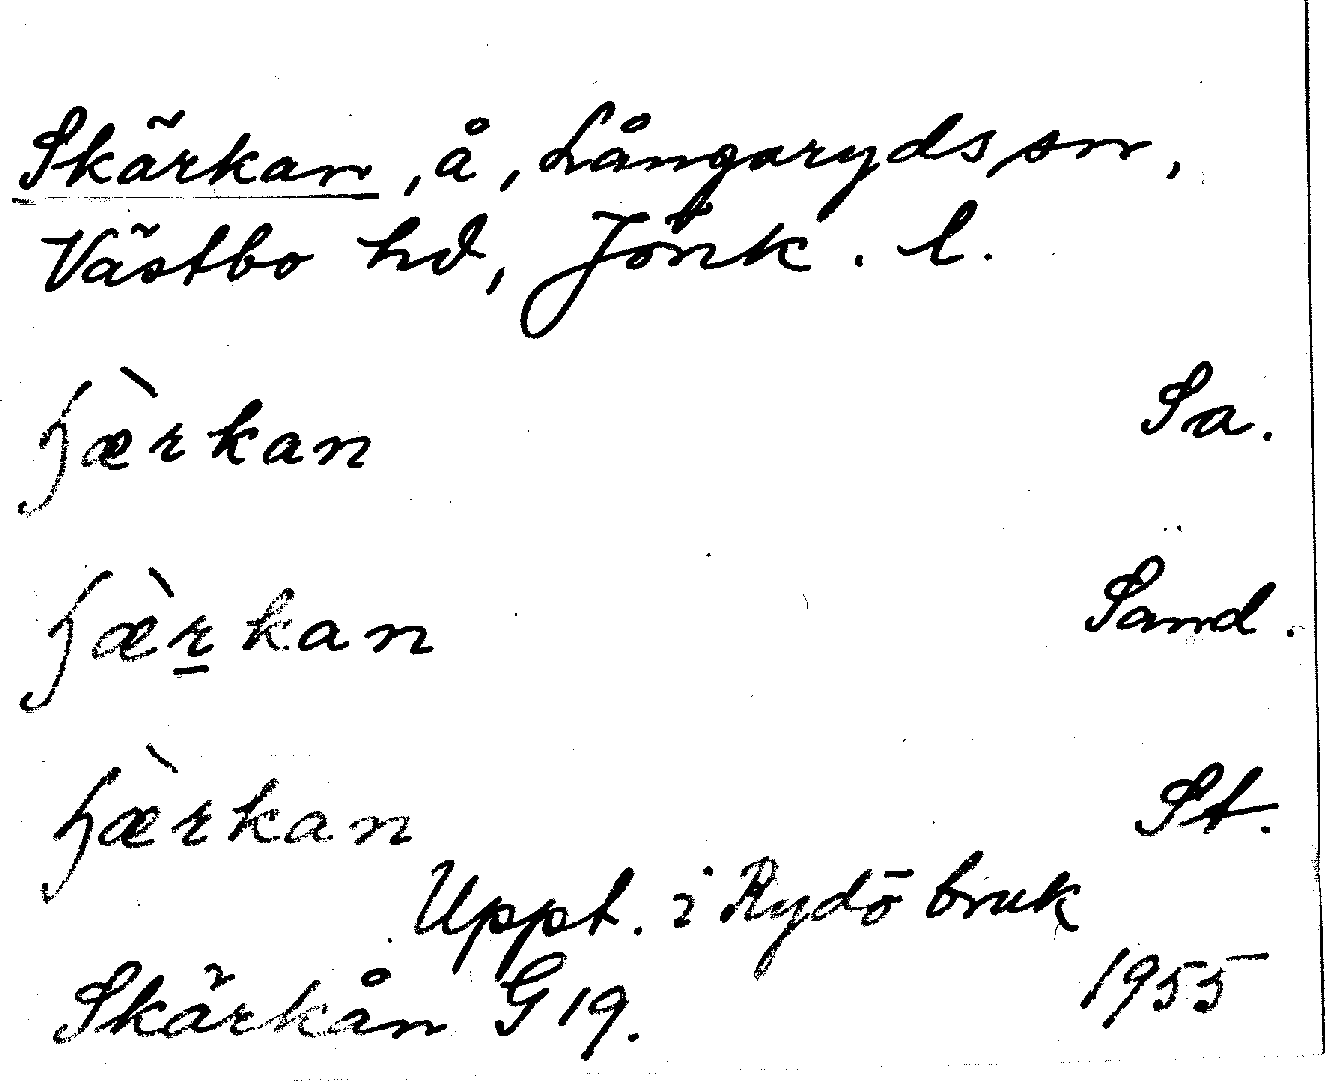 Skärkan, å, Långaryds sn,
Västbo hd, Jönk. l.
ɧæ̀rkan Sa.
ɧæ̀r̲kan Sand.
ɧæ̀rkan St.
Uppt. i Rydö bruk
Skärkån G 19. 1955